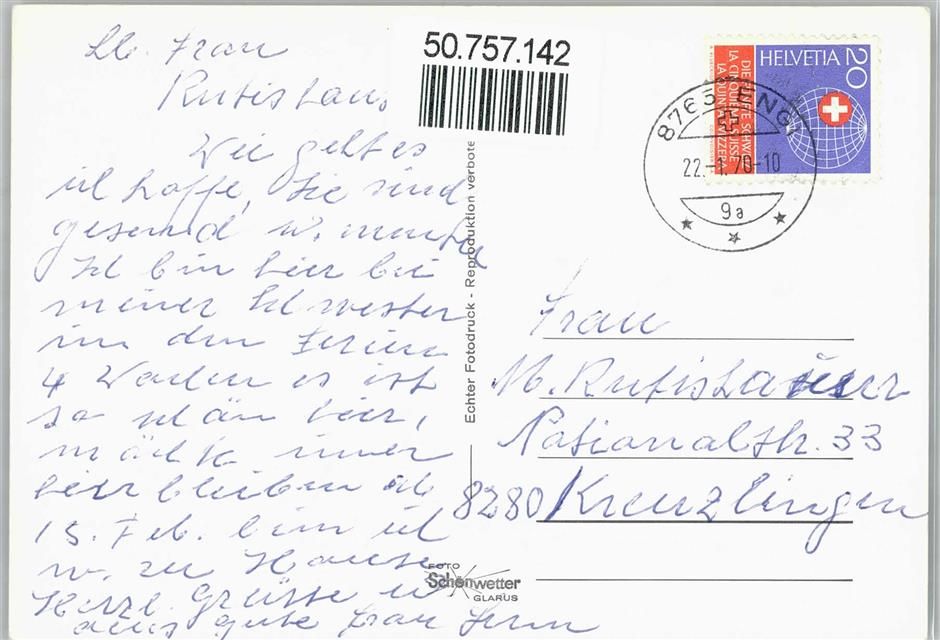 Lb. Frau
Rutishaus,
Wie geht es
ich hoffe, Sie sind
gesund u. munter
Ich bin hier bei
meiner Schwester
in den Ferien
4 Wochen es ist
so schön hier,
möchte immer
hier bleiben ab
15. Feb. bin ich
w. zu Hause
Herzl. Grüsse u
alles gute Frau
50.757.142
HELVETIA 20
DIE FÜNFTE SCHWEIZ
LA CINQUIÈME SUISSE
LA QUINTA SVIZZERA
8765 ENGI
22.-1.70-10
9a
Echter Fotodruck - Reproduktion verboten
Frau
M. Rutishauser
Nationalstr. 33
8280 Kreuzlingen
FOTO
Schönwetter
GLARUS